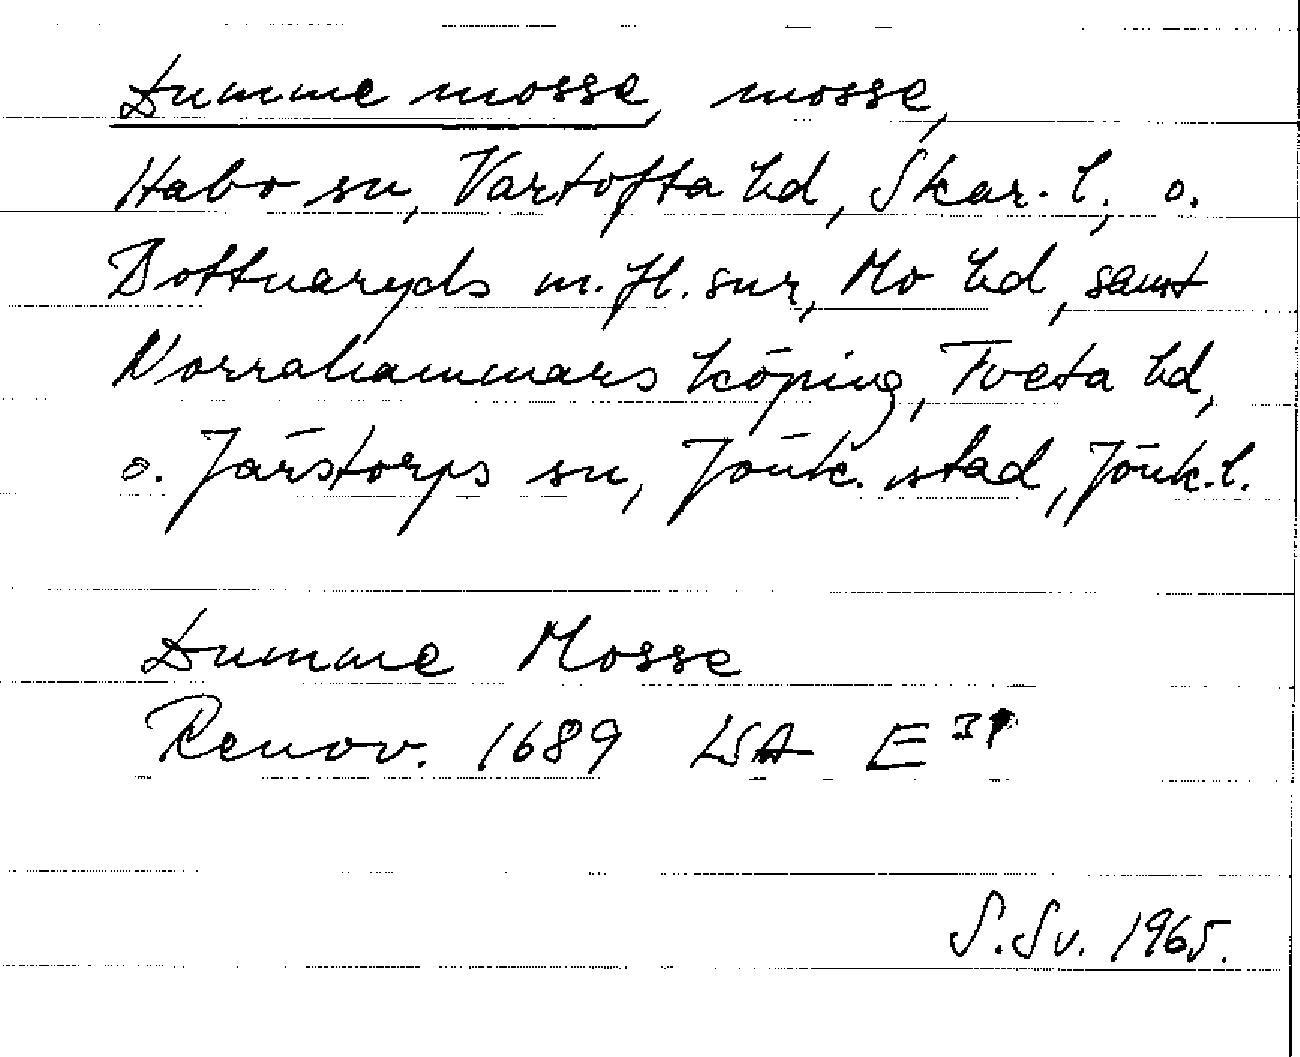 Dumme mosse, mosse,
Habo sn, Vartofta hd, Skar. l., o.
Bottnaryds m. fl. snr, Mo hd, samt
Norrahammars köping, Tveta hd,
o. Järstorps sn, Jönk. stad, Jönk. l.
Dumme Mosse
Renov. 1689 LSA E
S. Sv. 1965.